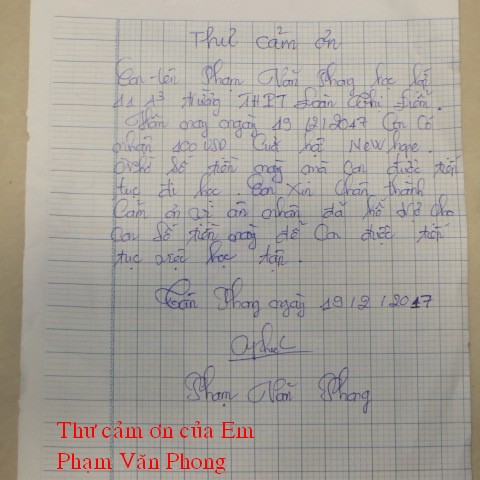 Thư cảm ơn
Con tên Phạm Văn Phong học lớp
11 A3 trường THPT Đoàn Thị Điểm.
Hôm nay ngày 19/2/2017 Con Có
nhận 100 USD Của hội New hope.
nhờ số tiền này mà Con được tiếp
tục đi học. Con Xin Chân thành
Cảm ơn vì ân nhân đã hỗ trợ cho
Con số tiền này để Con được tiếp
tục việc học tập.
Phong ngày 19/2/2017
Phạm Văn Phong
Thư cảm ơn của Em
Phạm Văn Phong